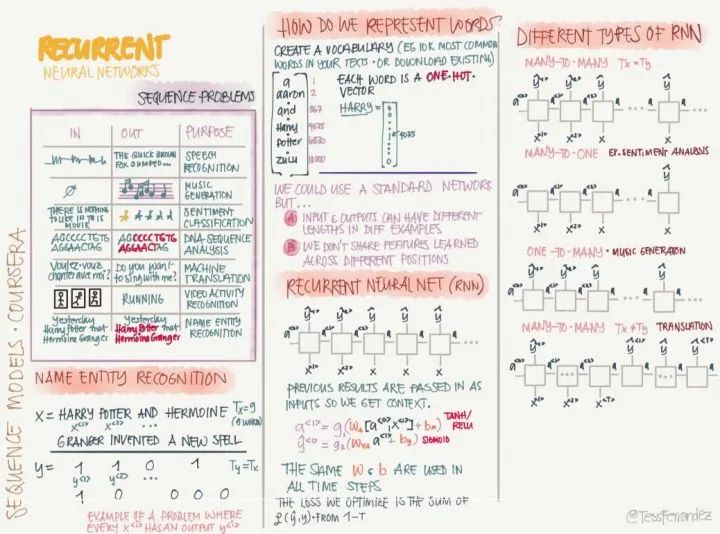 RECURRENT
NEURAL NETWORKS
SEQUENCE PROBLEMS
IN OUT PURPOSE
THE QUICK BROWN FOX JUMPED... SPEECH RECOGNITION
∅ MUSIC GENERATION
THERE IS NOTHING TO LIKE IN THIS MOVIE SENTIMENT CLASSIFICATION
AGCCCCTGTG AGGAACTAG AGCCCCTGTG AGGAACTAG DNA-SEQUENCE ANALYSIS
Voulez-vouz chanter avec moi? Do you want to sing with me? MACHINE TRANSLATION
RUNNING VIDEO ACTIVITY RECOGNITION
Yesterday Harry Potter met Hermoine Granger Yesterday Harry Potter met Hermoine Granger NAME ENTITY RECOGNITION
NAME ENTITY RECOGNITION
X = HARRY POTTER AND HERMOINE Tx=9
x<1> x<2> ... (9 WORDS)
GRANGER INVENTED A NEW SPELL
y = 1 1 0 1 Ty=Tx
y<1> y<2> ...
1 0 0 0 0
EXAMPLE OF A PROBLEM WHERE
EVERY X<i> HAS AN OUTPUT y<i>
SEQUENCE MODELS · COURSERA
HOW DO WE REPRESENT WORDS?
CREATE A VOCABULARY (EG 10K MOST COMMON
WORDS IN YOUR TEXTS · OR DOWNLOAD EXISTING)
a 1
aaron 2
and 367
Harry 4075
potter 6830
zulu 10000
EACH WORD IS A ONE·HOT·
VECTOR
HARRY =
4075
WE COULD USE A STANDARD NETWORK
BUT...
A INPUT & OUTPUTS CAN HAVE DIFFERENT
LENGTHS IN DIFF EXAMPLES
B WE DON'T SHARE FEATURES LEARNED
ACROSS DIFFERENT POSITIONS
RECURRENT NEURAL NET (RNN)
PREVIOUS RESULTS ARE PASSED IN AS
INPUTS SO WE GET CONTEXT.
TANH/
RELU
SIGMOID
THE SAME W & b ARE USED IN
ALL TIME STEPS
THE LOSS WE OPTIMIZE IS THE SUM OF
ℒ(ŷ,y) · FROM 1-T
DIFFERENT TYPES OF RNN
MANY-TO-MANY Tx=Ty
MANY-TO-ONE EX. SENTIMENT ANALYSIS
ONE-TO-MANY · MUSIC GENERATION
MANY-TO-MANY Tx≠Ty TRANSLATION
@TessFerrandez